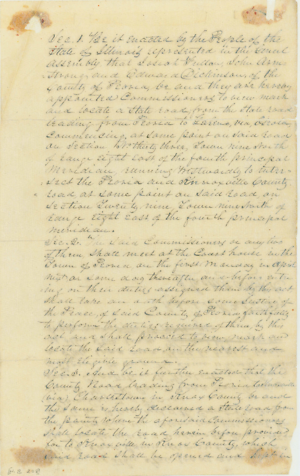 Sec. 1. Be it enacted by the People of the
State of Illinois represented in the General
Assembly that Josiah Fulton, John Arm
strong and Edward Dickinson of the
County of Peoria be and they are hereby
appointed Commissioners to view mark
and locate a State road from the State road
leading from Peoria to
Commencing at some point on said road
on Section thirty three, Town nine North
of range eight East of the fourth principal
Meridian, running Westwardly to inter
sect the Peoria and Knoxville County
road at some point on said road on
Section nine Town nine North of
range eight East of the fourth principal
meridian.
Sec. 2. Said Commissioners or any two
of them shall meet at the Court House in the
Town of Peoria on the first Monday in
or as soon as thereafter and before enter
ing on their duties assigned them by this act
shall take an oath before some Justice of
the Peace of said County of Peoria faithfully
to perform the duties required of them by this
act and shall proceed to view, mark and
locate the said road on the nearest and
most eligible ground.
Sec. 3. And be it further enacted that the
County Road leading from Peoria
Charleston in County be and
the same is hereby declared a State road
the point where the aforesaid Commissioners
shall locate the road herein before
County, which
said road shall be opened and